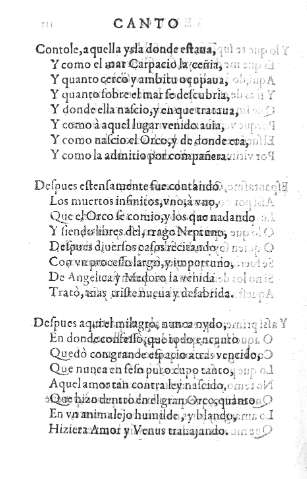 CANTO
Contole, aquella ysla donde estaua,
Y como el mar Carpacio la ceñia,
Y quanto cercò y ambitu ocupaua,
Y quanto sobre el mar se descubria,
Y donde ella nascio, y en que trataua,
Y como à aquel lugar venido auia,
Y como nascio el Orco, y de donde era,
Y como la admitio por compañera.
Despues estensamente fue contando
Los muertos infinitos, vno à vno,
Que el Orco se comio, y los que nadando
Y siendo libres del, trago Neptuno,
Despues diuersos casos recitando
Con vn processo largo, y importuno,
De Angelica y Medoro la venida
Tratò, triste nueua y desabrida.
Despues aqui el milagro, nunca oydo,
En donde confesso, que todo encanto
Quedò con grande espacio atras vencido,
Que nunca en seso puro cupo tanto,
Aquel amor tan contra ley nascido,
Que hizo dentro en el gran Orco, quanto
En vn animalejo humilde, y blando,
Hiziera Amor y Venus trabajando.